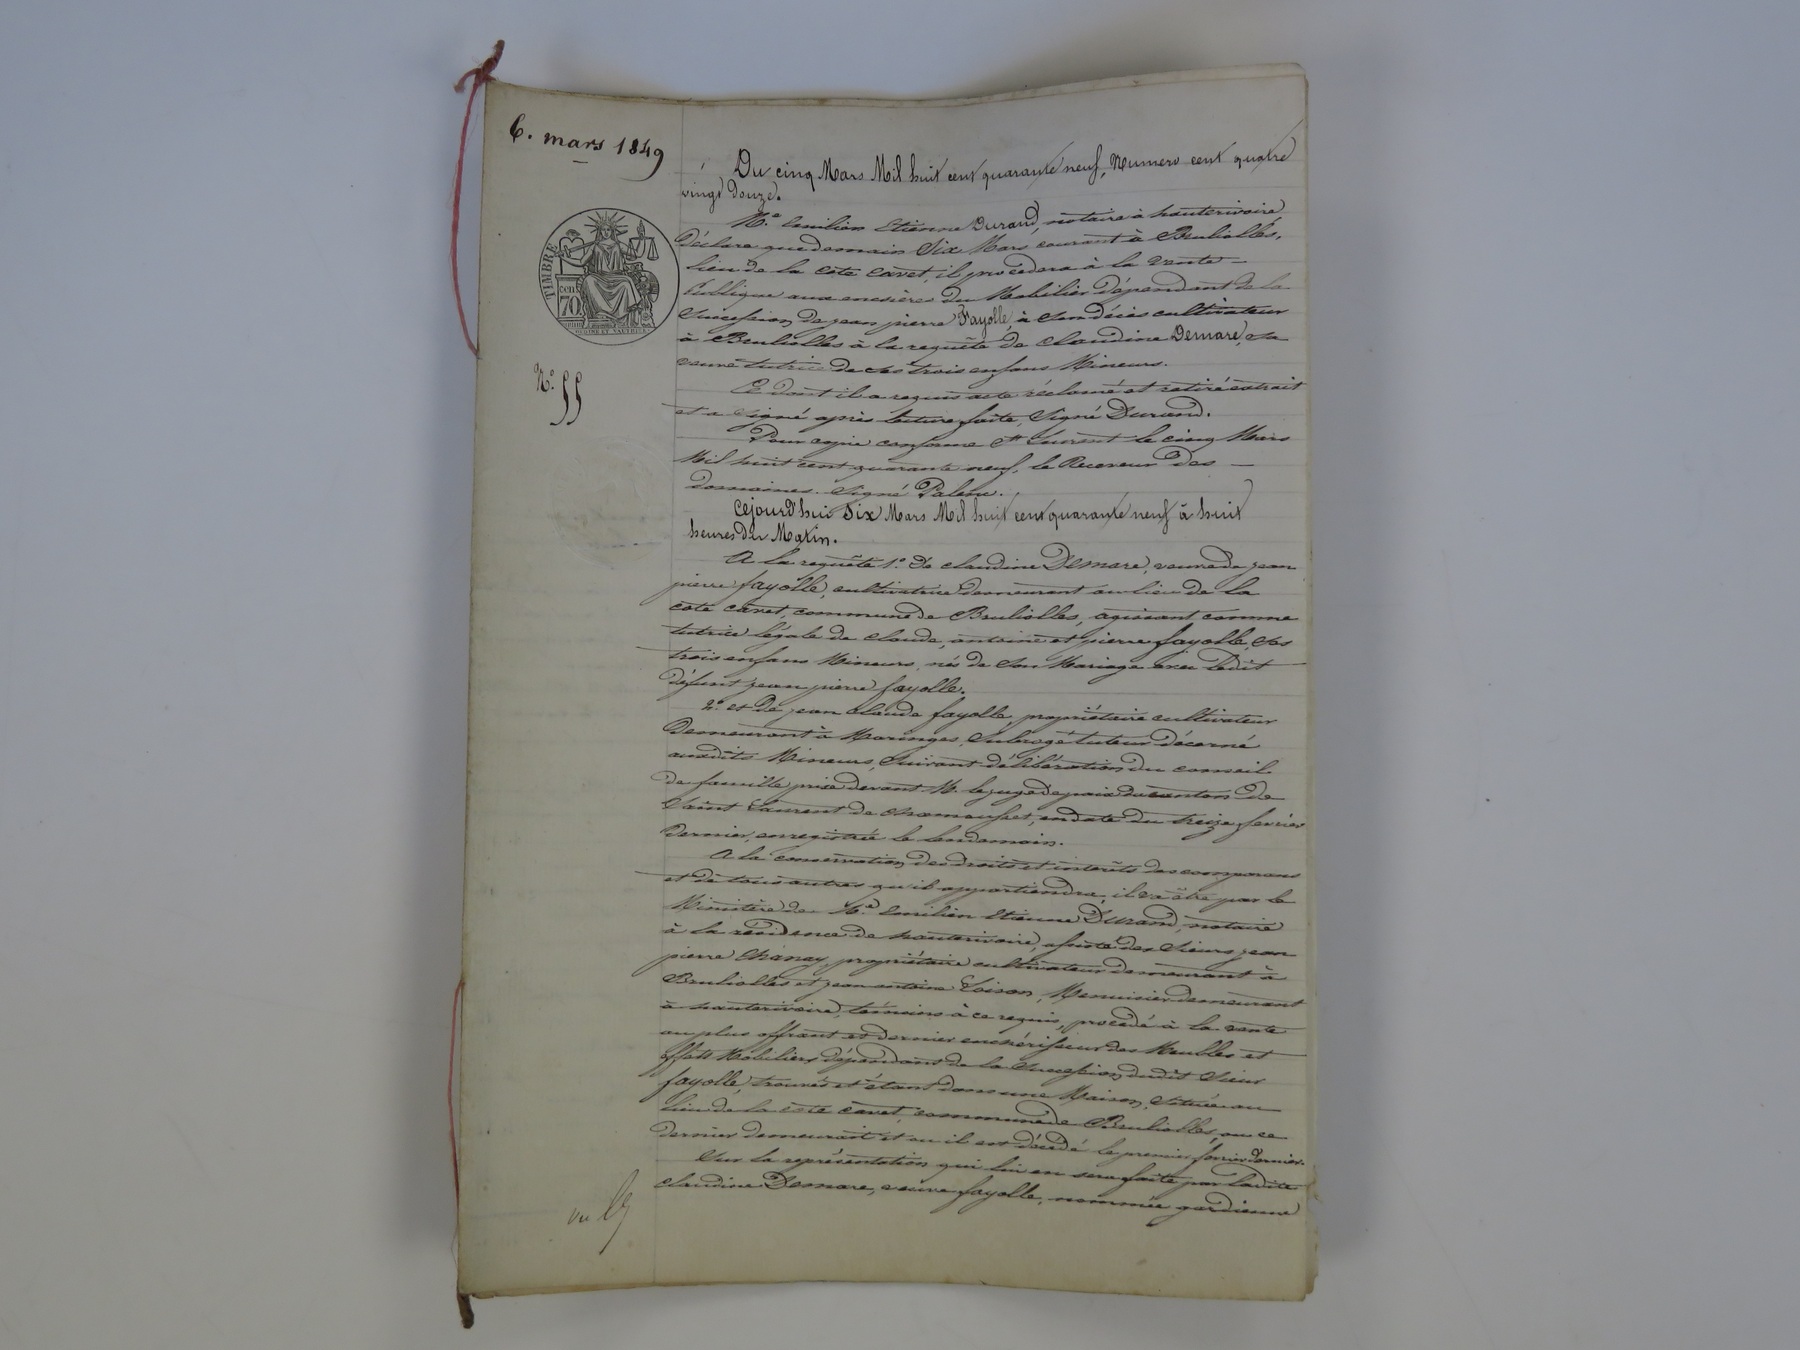 6. mars 1849
Du cinq Mars Mil huit cent quarante neuf, Numero cent quatre
vingt douze.
TIMBRE
cen
70
N.º 55
M.e Emilien Etienne Durand, notaire à hauterivoire,
Déclare que demain Six Mars courant à Brullioles,
lieu de la cote cavet, il procedera à la vente —
Publique aux enchères du Mobilier dépendant de la
Succession de jean pierre Fayolle, à Son décès cultivateur
à Brullioles à la requête de Claudine Demare, sa
veuve tutrice de ses trois enfans Mineurs.
Ce dont il a requis acte réclamé et retiré extrait
et a Signé après lecture faite, Signé Durand.
Pour copie conforme St Laurent le cinq Mars
Mil huit cent quarante neuf, le Receveur des —
domaines. Signé
Cejourd'hui Six Mars Mil huit cent quarante neuf à huit
heures du Matin.
A la requête 1.º De claudine Demare, veuve de jean
pierre fayolle, cultivatrice demeurant au lieu de la
cote cavet, commune de Brullioles, agissant comme
tutrice légale de claude, antoine et pierre fayolle, Ses
trois enfans Mineurs, nés de Son Mariage avec ledit
défunt jean pierre fayolle.
2.º et de jean claude fayolle, propriétaire cultivateur
Demeurant à Maringes, Subrogé tuteur décerné
auxdits Mineurs, Suivant délibération du conseil
de famille prise devant M. le juge de paix du canton de
Saint Laurent de chamousset, en date du treize fevrier
Dernier, enregistrée le lendemain.
A la conservation des droits et intérêts des comparans
et de tous autres qu'il appartiendra, il va être par le
Ministère de M.e Emilien Etienne Durand, notaire
à la résidence de hauterivoire, assisté des Sieurs jean
pierre Chanay, propriétaire cultivateur demeurant à
Brullioles et jean antoine Loison, Menuisier demeurant
à hauterivoire, témoins à ce requis, procédé à la vente
au plus offrant et dernier enchérisseur des Meubles et
effets Mobiliers dépendant de la Succession dudit Sieur
fayolle, trouvés et étant dans une Maison, Située au
lieu de la cote cavet, commune de Brullioles, ou ce
dernier demeurait et ou il est décédé le premier fevrier dernier.
Sur la représentation qui lui en sera faite par ladite
claudine Demare, veuve fayolle, nommée gardienne